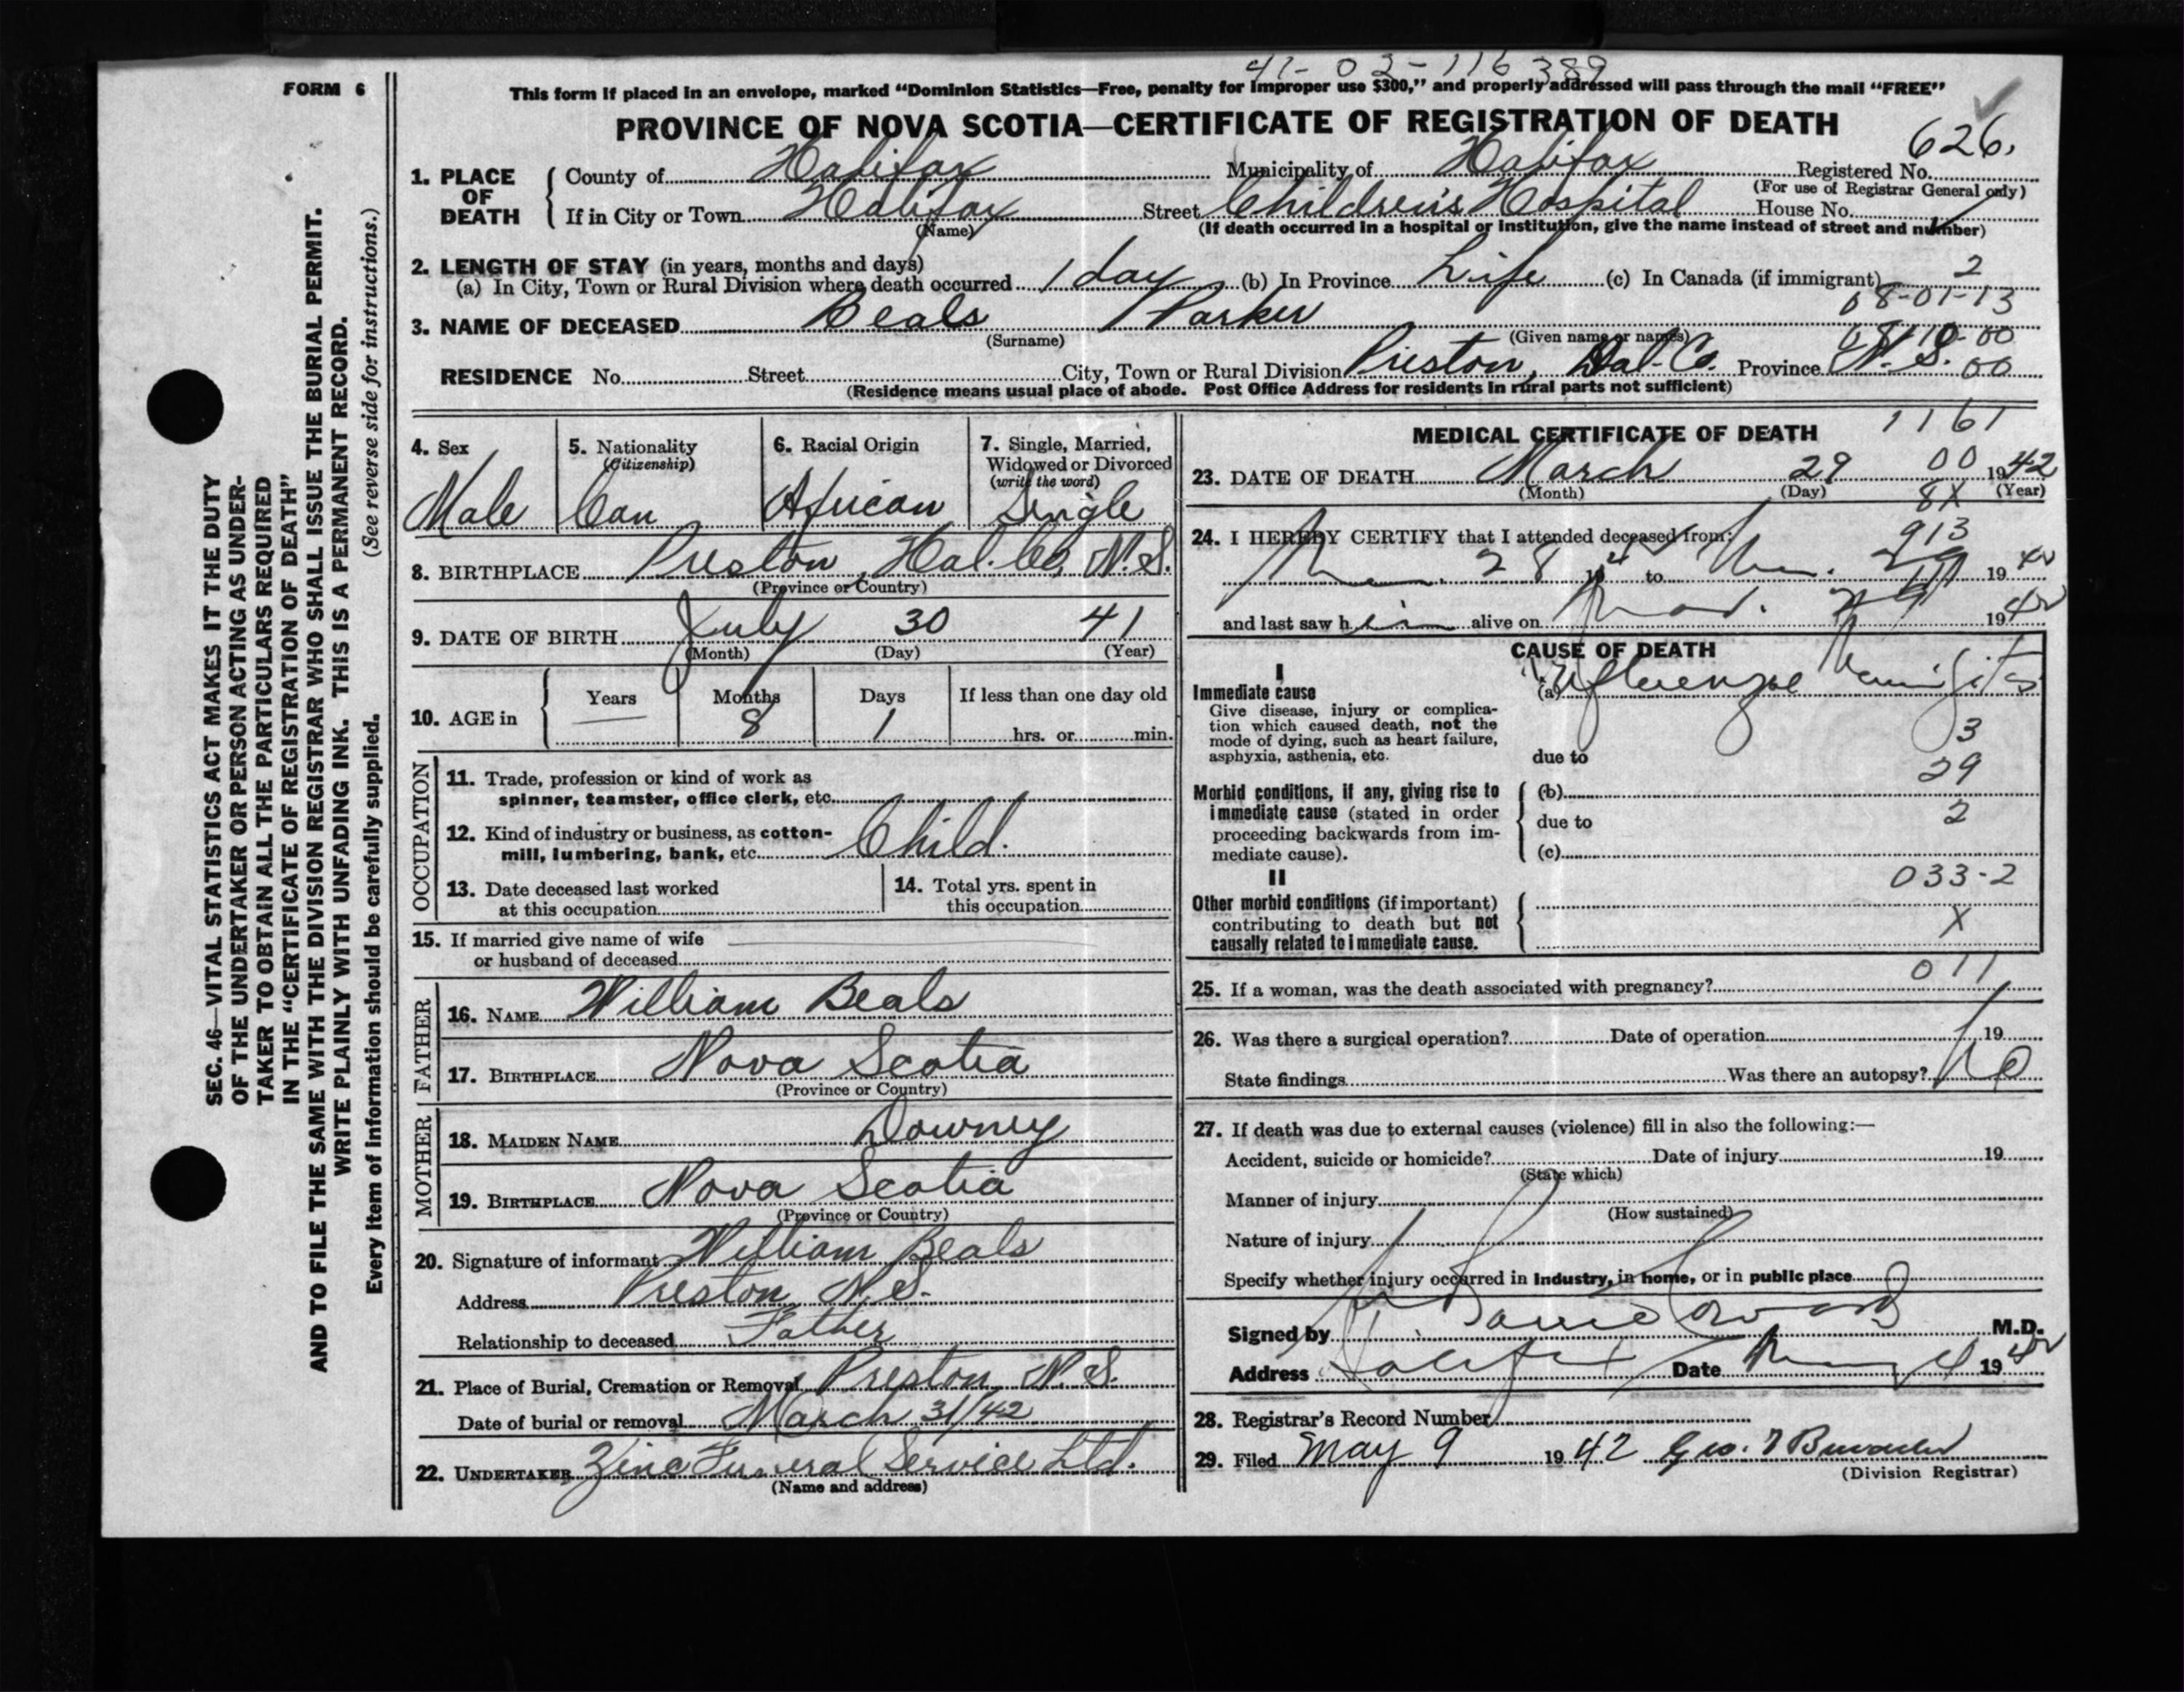 41-02-116389
FORM 6
This form if placed in an envelope, marked "Dominion Statistics—Free, penalty for improper use $300," and properly addressed will pass through the mail "FREE"
PROVINCE OF NOVA SCOTIA—CERTIFICATE OF REGISTRATION OF DEATH
626.
1. PLACE OF DEATH
County of Halifax Municipality of Halifax Registered No.
(For use of Registrar General only)
If in City or Town Halifax Street Children's Hospital House No.
(Name)
(If death occurred in a hospital or institution, give the name instead of street and number)
2. LENGTH OF STAY (in years, months and days)
(a) In City, Town or Rural Division where death occurred 1 day (b) In Province Life (c) In Canada (if immigrant) 2
08-01-13
3. NAME OF DECEASED Beals Parker
(Surname) (Given name or names)
RESIDENCE No. Street City, Town or Rural Division Preston, Hal. Co. Province N.S. 00
(Residence means usual place of abode. Post Office Address for residents in rural parts not sufficient)
4. Sex
Male
5. Nationality
(Citizenship)
Can
6. Racial Origin
African
7. Single, Married,
Widowed or Divorced
(write the word)
Single
8. BIRTHPLACE Preston, Hal. Co. N.S.
(Province or Country)
9. DATE OF BIRTH July 30 41
(Month) (Day) (Year)
10. AGE in Years — Months 8 Days 1 If less than one day old
hrs. or min.
OCCUPATION
11. Trade, profession or kind of work as
spinner, teamster, office clerk, etc.
12. Kind of industry or business, as cotton-
mill, lumbering, bank, etc. Child.
13. Date deceased last worked
at this occupation
14. Total yrs. spent in
this occupation
15. If married give name of wife
or husband of deceased
FATHER
16. NAME William Beals
17. BIRTHPLACE Nova Scotia
(Province or Country)
MOTHER
18. MAIDEN NAME Downey
19. BIRTHPLACE Nova Scotia
(Province or Country)
20. Signature of informant William Beals
Address Preston N.S.
Relationship to deceased Father
21. Place of Burial, Cremation or Removal Preston N.S.
Date of burial or removal March 31/42
22. UNDERTAKER Zinc Funeral Service Ltd.
(Name and address)
MEDICAL CERTIFICATE OF DEATH
1161
23. DATE OF DEATH March 29 00 1942
(Month) (Day) (Year)
8X
24. I HEREBY CERTIFY that I attended deceased from:
913
28 to 29 19
and last saw him alive on 1942
CAUSE OF DEATH
I
Immediate cause
Give disease, injury or complica-
tion which caused death, not the
mode of dying, such as heart failure,
asphyxia, asthenia, etc.
(a) Influenzae Meningitis
3
due to
29
Morbid conditions, if any, giving rise to
immediate cause (stated in order
proceeding backwards from im-
mediate cause).
(b)
due to 2
(c)
II
033-2
Other morbid conditions (if important)
contributing to death but not
causally related to immediate cause.
X
011
25. If a woman, was the death associated with pregnancy?
26. Was there a surgical operation? Date of operation 19
State findings Was there an autopsy? No
27. If death was due to external causes (violence) fill in also the following:—
Accident, suicide or homicide? Date of injury 19
(State which)
Manner of injury
(How sustained)
Nature of injury
Specify whether injury occurred in industry, in home, or in public place
Signed by M.D.
Address Halifax Date 1942
28. Registrar's Record Number
29. Filed May 9 1942 Geo.
(Division Registrar)
SEC. 46—VITAL STATISTICS ACT MAKES IT THE DUTY
OF THE UNDERTAKER OR PERSON ACTING AS UNDER-
TAKER TO OBTAIN ALL THE PARTICULARS REQUIRED
IN THE "CERTIFICATE OF REGISTRATION OF DEATH"
AND TO FILE THE SAME WITH THE DIVISION REGISTRAR WHO SHALL ISSUE THE BURIAL PERMIT.
WRITE PLAINLY WITH UNFADING INK. THIS IS A PERMANENT RECORD.
Every item of information should be carefully supplied. (See reverse side for instructions.)